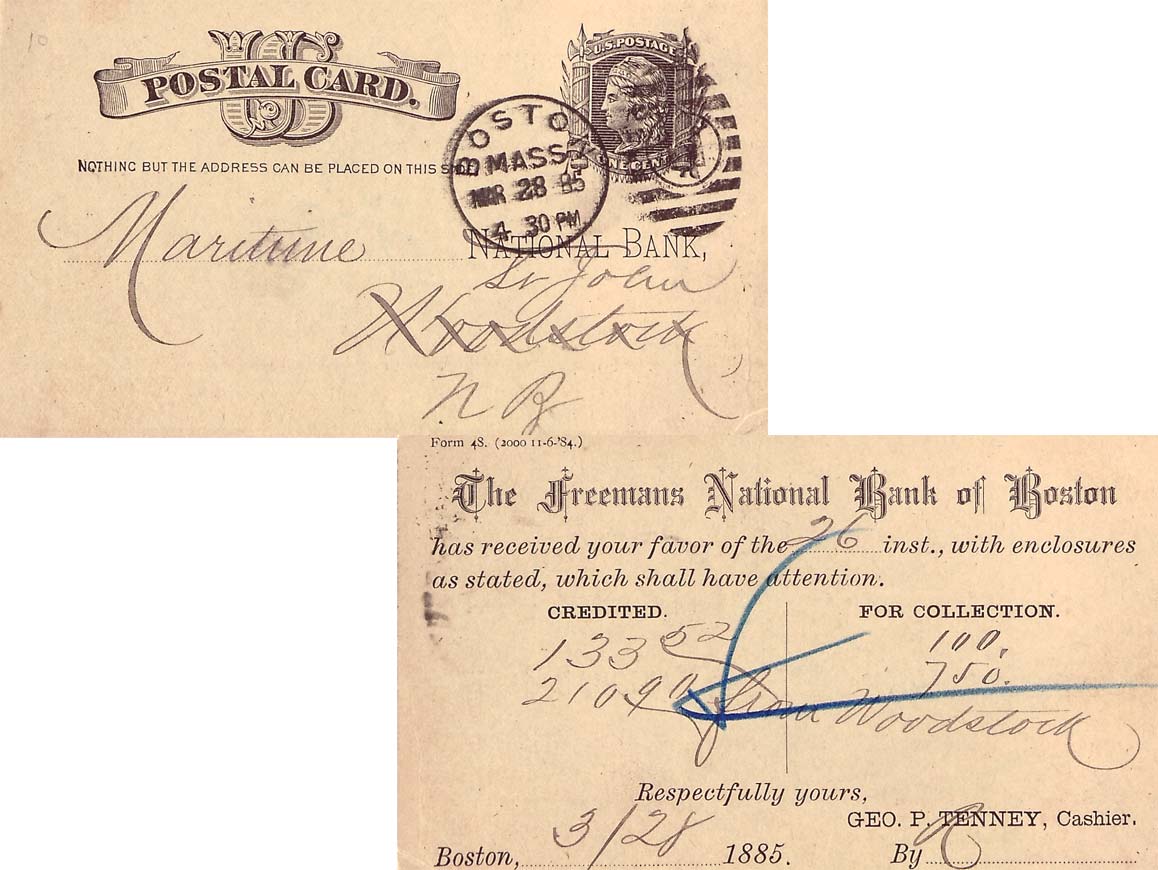 10
US
POSTAL CARD.
U.S. POSTAGE
ONE CENT
NOTHING BUT THE ADDRESS CAN BE PLACED ON THIS SIDE.
BOSTON
MASS
MAR 28 85
4 30 PM
Maritime NATIONAL BANK,
St John
Woodstock
N B
Form 48. (2000 11-6-'84.)
The Freemans National Bank of Boston
has received your favor of the 26 inst., with enclosures
as stated, which shall have attention.
CREDITED. FOR COLLECTION.
133 52 100.
210 90 750.
from Woodstock
Respectfully yours,
GEO. P. TENNEY, Cashier.
Boston, 3/28 1885. By